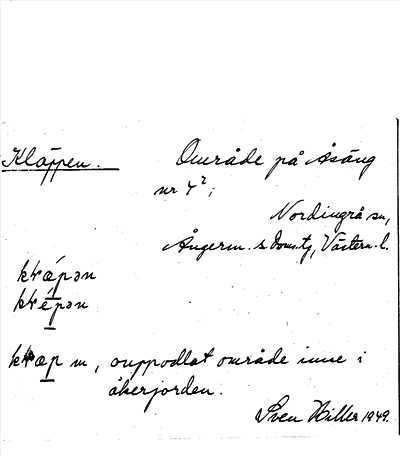 Kläppen. Område på Åsäng
nr 4²;
Nordingrå sn,
Ångerm. s. doms.tg, Västern. l.
kɫǽpən
kɫépən
kɫæp m, ouppodlat område inne i
åkerjorden.
Sven Hiller 1949.